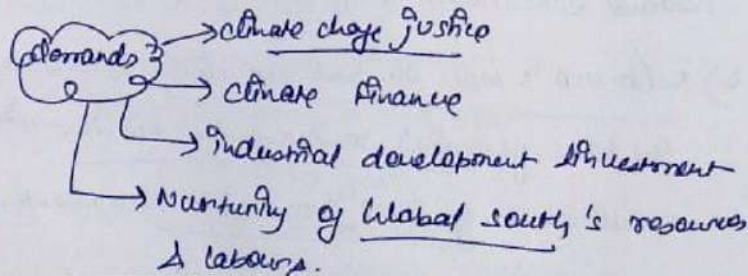 demands
climate change justice
climate finance
industrial development & investment
Nurturing of Global south's resources
& labours.